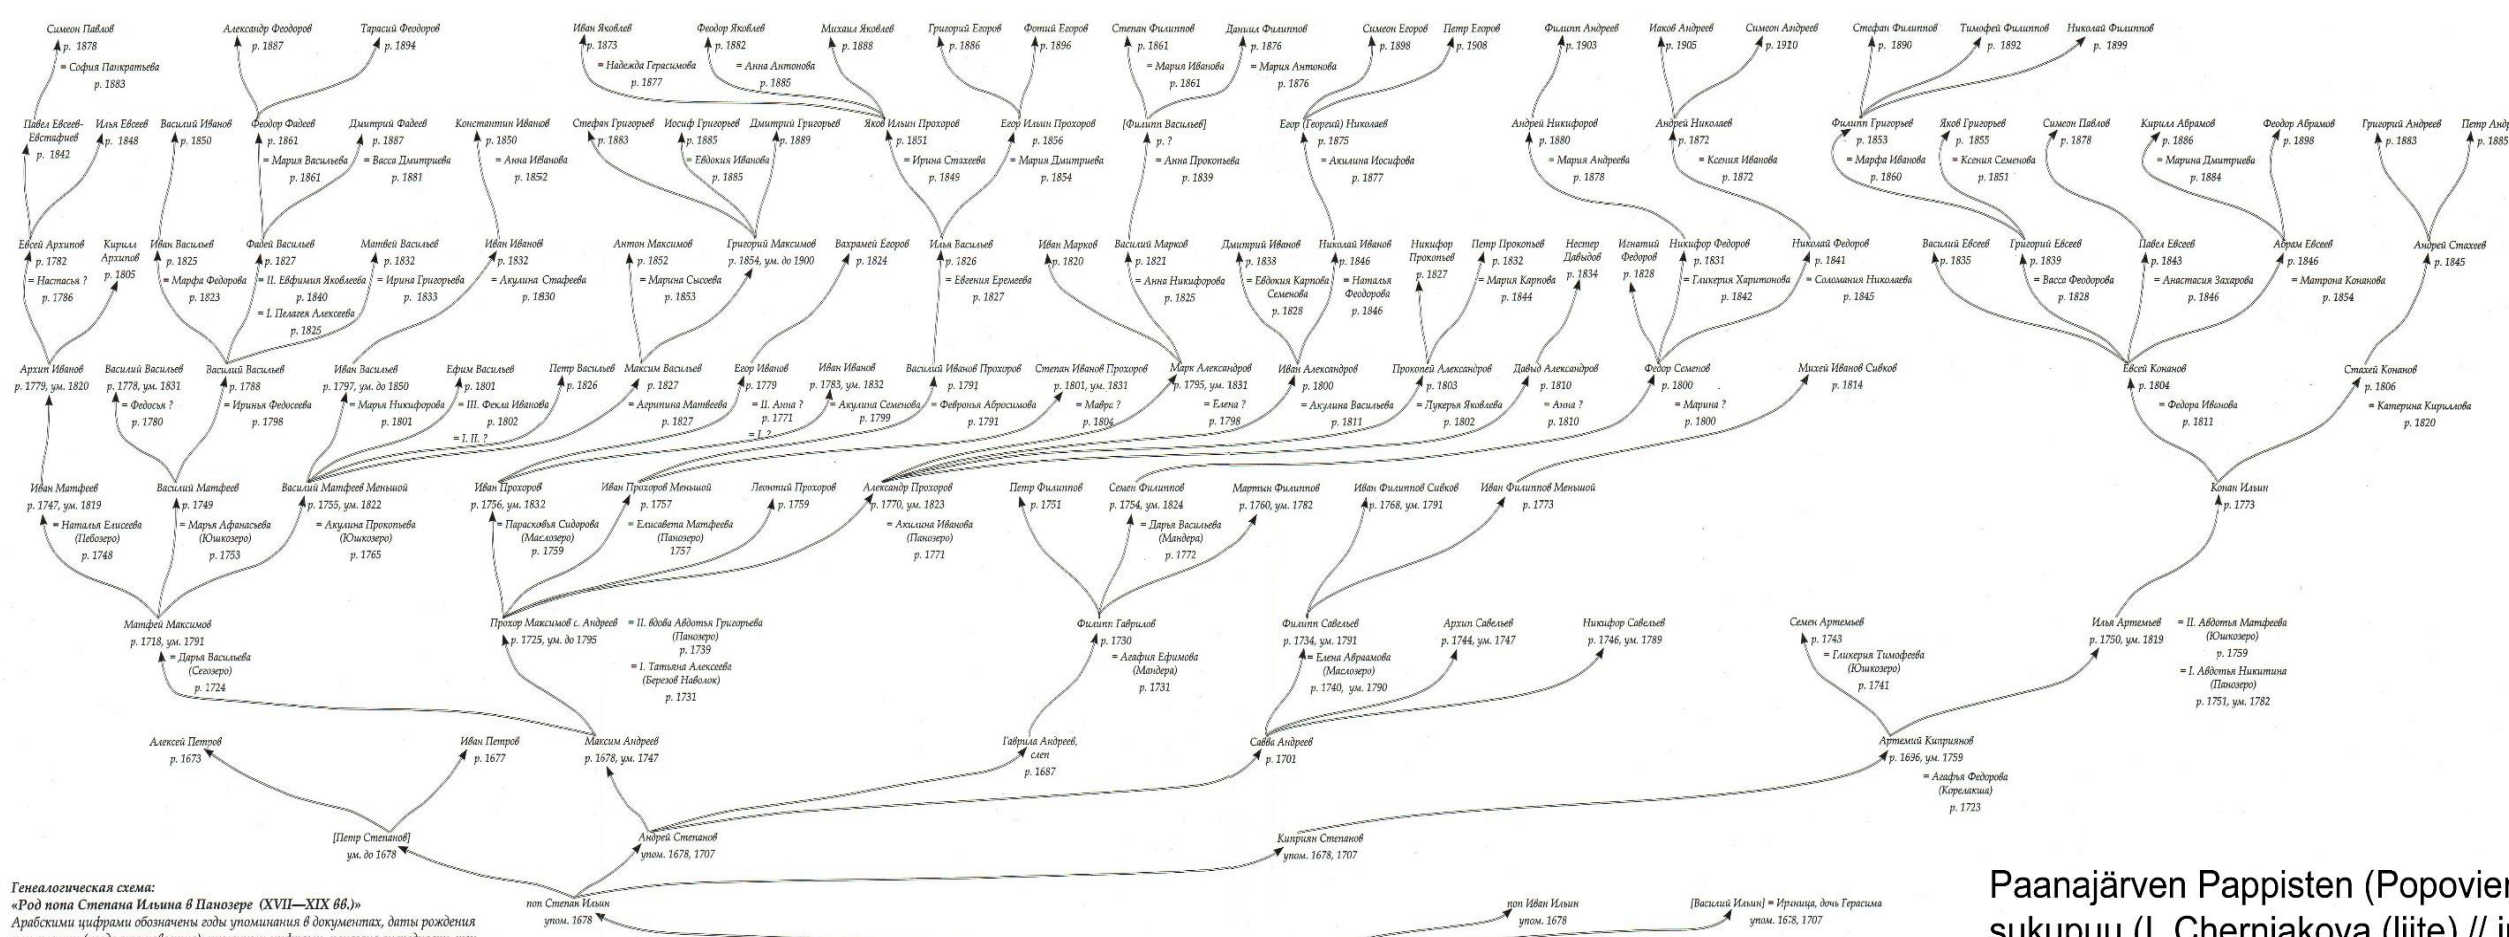 Симеон Павлов
р. 1878
= София Панкратьева
р. 1883
Александр Феодоров
р. 1887
Тарасий Феодоров
р. 1894
Иван Яковлев
р. 1873
= Надежда Герасимова
р. 1877
Феодор Яковлев
р. 1882
= Анна Антонова
р. 1885
Михаил Яковлев
р. 1888
Григорий Егоров
р. 1886
Фотий Егоров
р. 1896
Степан Филиппов
р. 1861
= Мария Иванова
р. 1861
Даниил Филиппов
р. 1876
= Мария Антонова
р. 1876
Симеон Егоров
р. 1898
Петр Егоров
р. 1908
Филипп Андреев
р. 1903
Иаков Андреев
р. 1905
Симеон Андреев
р. 1910
Стефан Филиппов
р. 1890
Тимофей Филиппов
р. 1892
Николай Филиппов
р. 1899
Павел Евсеев-
Евстафиев
р. 1842
Илья Евсеев
р. 1848
Василий Иванов
р. 1850
Феодор Фадеев
р. 1861
= Мария Васильева
р. 1861
Дмитрий Фадеев
р. 1887
= Васса Дмитриева
р. 1881
Константин Иванов
р. 1850
= Анна Иванова
р. 1852
Стефан Григорьев
р. 1883
Иосиф Григорьев
р. 1885
= Евдокия Иванова
р. 1885
Дмитрий Григорьев
р. 1889
Яков Ильин Прохоров
р. 1851
= Ирина Стахеева
р. 1849
Егор Ильин Прохоров
р. 1856
= Мария Дмитриева
р. 1854
[Филипп Васильев]
р. ?
= Анна Прокопьева
р. 1839
Егор (Георгий) Николаев
р. 1875
= Акилина Иосифова
р. 1877
Андрей Никифоров
р. 1880
= Мария Андреева
р. 1878
Андрей Николаев
р. 1872
= Ксения Иванова
р. 1872
Филипп Григорьев
р. 1853
= Марфа Иванова
р. 1860
Яков Григорьев
р. 1855
= Ксения Семенова
р. 1851
Симеон Павлов
р. 1878
Кирилл Абрамов
р. 1886
= Марина Дмитриева
р. 1884
Феодор Абрамов
р. 1898
Григорий Андреев
р. 1883
Петр Андр
р. 1885
Евсей Архипов
р. 1782
= Настасья ?
р. 1786
Кирилл
Архипов
р. 1805
Иван Васильев
р. 1825
= Марфа Федорова
р. 1823
Фадей Васильев
р. 1827
= II. Евфимия Яковлеева
р. 1840
= I. Пелагея Алексеева
р. 1825
Матвей Васильев
р. 1832
= Ирина Григорьева
р. 1833
Иван Иванов
р. 1832
= Акулина Стафеева
р. 1830
Антон Максимов
р. 1852
= Марина Сысоева
р. 1853
Григорий Максимов
р. 1854, ум. до 1900
Вахрамей Егоров
р. 1824
Илья Васильев
р. 1826
= Евгения Еремеева
р. 1827
Иван Марков
р. 1820
Василий Марков
р. 1821
= Анна Никифорова
р. 1825
Дмитрий Иванов
р. 1838
= Евдокия Карпова
Семенова
р. 1828
Николай Иванов
р. 1846
= Наталья
Феодорова
р. 1846
Никифор
Прокопьев
р. 1827
Петр Прокопьев
р. 1832
= Мария Карпова
р. 1844
Нестер
Давыдов
р. 1834
Игнатий
Федоров
р. 1828
Никифор Федоров
р. 1831
= Гликерия Харитонова
р. 1842
Николай Федоров
р. 1841
= Соломания Николаева
р. 1845
Василий Евсеев
р. 1835
Григорий Евсеев
р. 1839
= Васса Феодорова
р. 1828
Павел Евсеев
р. 1843
= Анастасия Захарова
р. 1846
Абрам Евсеев
р. 1846
= Матрона Конанова
р. 1854
Андрей Стахеев
р. 1845
Архип Иванов
р. 1779, ум. 1820
Василий Васильев
р. 1778, ум. 1831
= Федосья ?
р. 1780
Василий Васильев
р. 1788
= Иринья Федосеева
р. 1798
Иван Васильев
р. 1797, ум. до 1850
= Марья Никифорова
р. 1801
Ефим Васильев
р. 1801
= III. Фекла Иванова
р. 1802
= I. II. ?
Петр Васильев
р. 1826
Максим Васильев
р. 1827
= Агрипина Матвеева
р. 1827
Егор Иванов
р. 1779
= II. Анна ?
р. 1771
= I. ?
Иван Иванов
р. 1783, ум. 1832
= Акулина Семенова
р. 1799
Василий Иванов Прохоров
р. 1791
= Февронья Абросимова
р. 1791
Степан Иванов Прохоров
р. 1801, ум. 1831
= Мавра ?
р. 1804
Марк Александров
р. 1795, ум. 1831
= Елена ?
р. 1798
Иван Александров
р. 1800
= Акулина Васильева
р. 1811
Прокопей Александров
р. 1803
= Лукерья Яковлева
р. 1802
Давыд Александров
р. 1810
= Анна ?
р. 1810
Федор Семенов
р. 1800
= Марина ?
р. 1800
Михей Иванов Сивков
р. 1814
Евсей Конанов
р. 1804
= Федора Иванова
р. 1811
Стахей Конанов
р. 1806
= Катерина Кириллова
р. 1820
Иван Матфеев
р. 1747, ум. 1819
= Наталья Елисеева
(Пебозеро)
р. 1748
Василий Матфеев
р. 1749
= Марья Афанасьева
(Юшкозеро)
р. 1753
Василий Матфеев Меньшой
р. 1755, ум. 1822
= Акулина Прокопьева
(Юшкозеро)
р. 1765
Иван Прохоров
р. 1756, ум. 1832
= Парасковья Сидорова
(Маслозеро)
р. 1759
Иван Прохоров Меньшой
р. 1757
= Елисавета Матфеева
(Панозеро)
1757
Леонтий Прохоров
р. 1759
Александр Прохоров
р. 1770, ум. 1823
= Акилина Иванова
(Панозеро)
р. 1771
Петр Филиппов
р. 1751
Семен Филиппов
р. 1754, ум. 1824
= Дарья Васильева
(Мандера)
р. 1772
Мартын Филиппов
р. 1760, ум. 1782
Иван Филиппов Сивков
р. 1768, ум. 1791
Иван Филиппов Меньшой
р. 1773
Конан Ильин
р. 1773
Матфей Максимов
р. 1718, ум. 1791
= Дарья Васильева
(Сегозеро)
р. 1724
Прохор Максимов с. Андреев
р. 1725, ум. до 1795
= II. вдова Авдотья Григорьева
(Панозеро)
р. 1739
= I. Татьяна Алексеева
(Березов Наволок)
р. 1731
Филипп Гаврилов
р. 1730
= Агафия Ефимова
(Мандера)
р. 1731
Филипп Савельев
р. 1734, ум. 1791
= Елена Авраамова
(Маслозеро)
р. 1740, ум. 1790
Архип Савельев
р. 1744, ум. 1747
Никифор Савельев
р. 1746, ум. 1789
Семен Артемьев
р. 1743
= Гликерия Тимофеева
(Юшкозеро)
р. 1741
Илья Артемьев
р. 1750, ум. 1819
= II. Авдотья Матфеева
(Юшкозеро)
р. 1759
= I. Авдотья Никитина
(Панозеро)
р. 1751, ум. 1782
Алексей Петров
р. 1673
Иван Петров
р. 1677
Максим Андреев
р. 1678, ум. 1747
Гаврила Андреев,
слеп
р. 1687
Савва Андреев
р. 1701
Артемий Киприянов
р. 1696, ум. 1759
= Агафья Федорова
(Корелакша)
р. 1723
[Петр Степанов]
ум. до 1678
Андрей Степанов
упом. 1678, 1707
Киприян Степанов
упом. 1678, 1707
поп Степан Ильин
упом. 1678
поп Иван Ильин
упом. 1678
[Василий Ильин] = Ириница, дочь Герасима
упом. 1678, 1707
Генеалогическая схема:
«Род попа Степана Ильина в Панозере (XVII—XIX вв.)»
Арабскими цифрами обозначены годы упоминания в документах, даты рождения
Paanajärven Pappisten (Popovien
sukupuu (I. Cherniakova (liite) // in